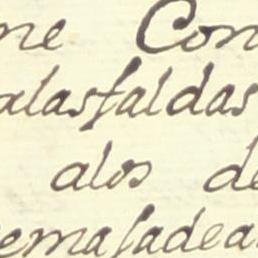 ne Con
alasfaldas
alos de
emasadea